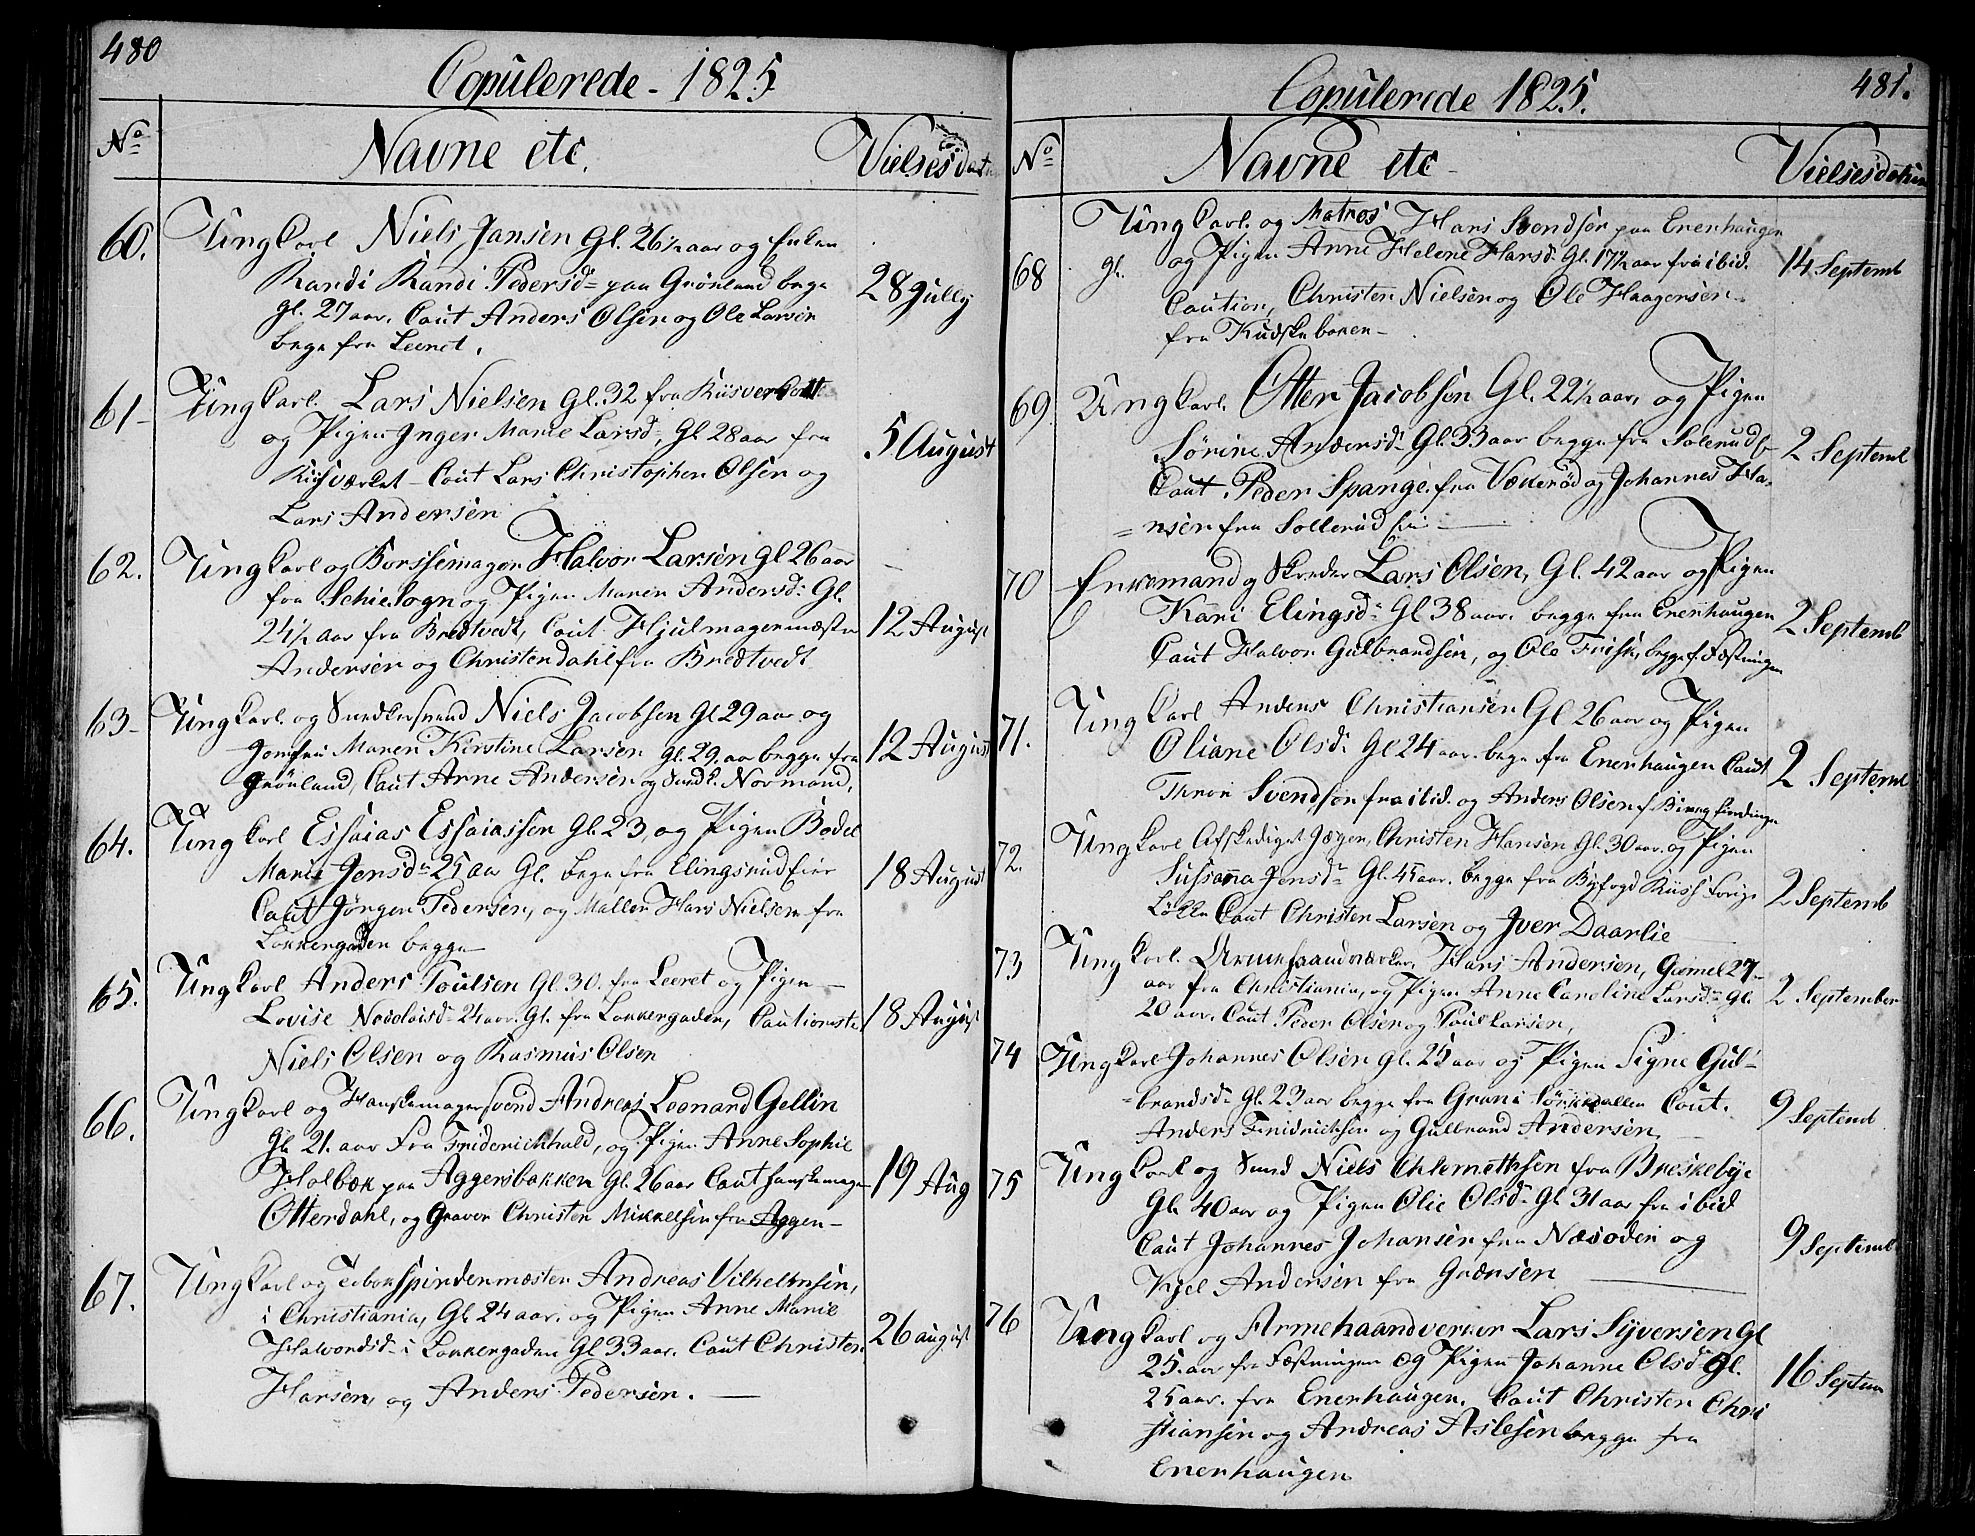 480
Copulerede - 1825
No Navne etc. Vielsesdat
60. Ungkarl Niels Jansen Gl. 26½ aar og Enken
Randi Randi Pedersd. paa Grönland bege
gl. 27 aar. Caut Anders Olsen og Ole Larsen
bege fra Leeret.
28 Jully
61- Ungkarl Lars Nielsen Gl. 32 fra
og Pigen Inger Marie Larsd. Gl 28 aar fra
Caut Lars Christopher Olsen og
Lars Andersen
5 August
62. Ungkarl og Børssemager Halvor Larsen Gl 26 aar
fra Schie Sogn og Pigen Maren Andersd. Gl.
24½ aar fra Bredtvedt, Caut. Hjulmagermæster
Andersen og Christen Dahl fra Bredtvedt
12 August
63- Ungkarl og Snedkersvend Niels Jacobsen Gl 29 aar og
Jomfru Maren Kirstine Larsen Gl. 29 aar begge fra
Grönland, Caut Arne Andersen og Snedk. Normand.
12 August
64. Ungkarl Essaias Essaiassen Gl. 23, og Pigen Bodel
Marie Jensd. 25 aar Gl. bege fra Elingsrud Eier
Caut Jörgen Pedersen, og Møller Hans Nielsen fra
Lakkergaden begge
18 August
65. Ungkarl Anders Poulsen Gl. 30. fra Leeret og Pigen
Lovise 24 aar. Gl. fra Lakkergaden, Cautioniste
Niels Olsen og Rasmus Olsen
18 August
66. Ungkarl og Hanskemagersvend Andreas Leonard Gellin
Gl. 21. aar Fra Friderichhald, og Pigen Anne Sophie
Holbæk paa Aggersbakken Gl. 26 aar Caut Hanskemager
Otterdahl, og Graver Christen Mikkelsen fra Agger-
19 Aug
67. Ungkarl og Andreas Vilhelmsen,
i Christiania, Gl. 24 aar. og Pigen Anne Marie
Halvordsd. i Lakkergaden Gl 33 aar. Caut Christen
Hansen, og Anders Pedersen.
26 august
481.
Copulerede 1825.
No Navne etc - Vielsesdatum
68 Ungkarl og Matros Hans Svendsen paa Enerhaugen
gl. og Pigen Anne Helene Hansd. Gl. 17½ aar fra ibid.
Caution, Christen Nielsen og Ole Haagensen
fra Kudskebaken-
14 Septemb
69 Ungkarl Otter Jacobsen Gl. 22½ aar, og Pigen
Sörine Andersd. Gl. 33 aar begge fra Solerud
Caut. Peder Spange fra Vækerød og Johannes Ha-
=nsen fra Sollerud
2 Septemb
70 Enkemand og Skreder Lars Olsen, Gl. 42 aar og Pigen
Kari Elingsd. Gl 38 aar. begge fra Enerhaugen
Caut Halvor Gulbrandsen, og Ole Frisk, begge f. Fæstningen
2 Septemb
71. Ungkarl Anders Christiansen Gl 26 aar og Pigen
Oliane Olsd. Gl 24 aar. bege fra Enerhaugen Caut
Thron Svendsen fra ibid. og Anders Olsen f.
2 Septemb
72. Ungkarl Afskediget Jæger, Christen Hansen Gl. 30 aar. og Pigen
Sussanna Jensd. Gl. 45 aar. begge fra Byfogd Russ
Løkke Caut Christen Larsen og Jver Daarlie
2 Septemb
73 Ungkarl. Armehaandværker, Hans Andersen, Gamel 27-
aar fra Christiania, og Pigen Anne Caroline Larsd. Gl.
20 aar. Caut. Peder Olsen og Poul Larsen,
2 September
74 Ungkarl Johannes Olsen Gl. 25 aar og Pigen Signe Gul-
=brandsd. Gl. 23 aar begge fra Grani Sörkedallen Caut.
Anders Fridrichsen og Gulbrand Andersen
9 Septemb
75 Ungkarl og Smed Niels Chlemethsen fra Breskebye
Gl. 40 aar og Pigen Olie Olsd. Gl. 31 aar fra ibid
Caut Johannes Johansen fra Næsoden og
Kjel Andersen fra Grænsen
9 Septemb
76 Ungkarl og Armehaandverker Lars Syversen Gl
25. aar fra Fæstningen og Pigen Johanne Olsd. Gl.
25 aar. fra Enerhaugen. Caut Christen Chri
stiansen og Andreas Aslesen begge fra
Enerhaugen
16 Septem